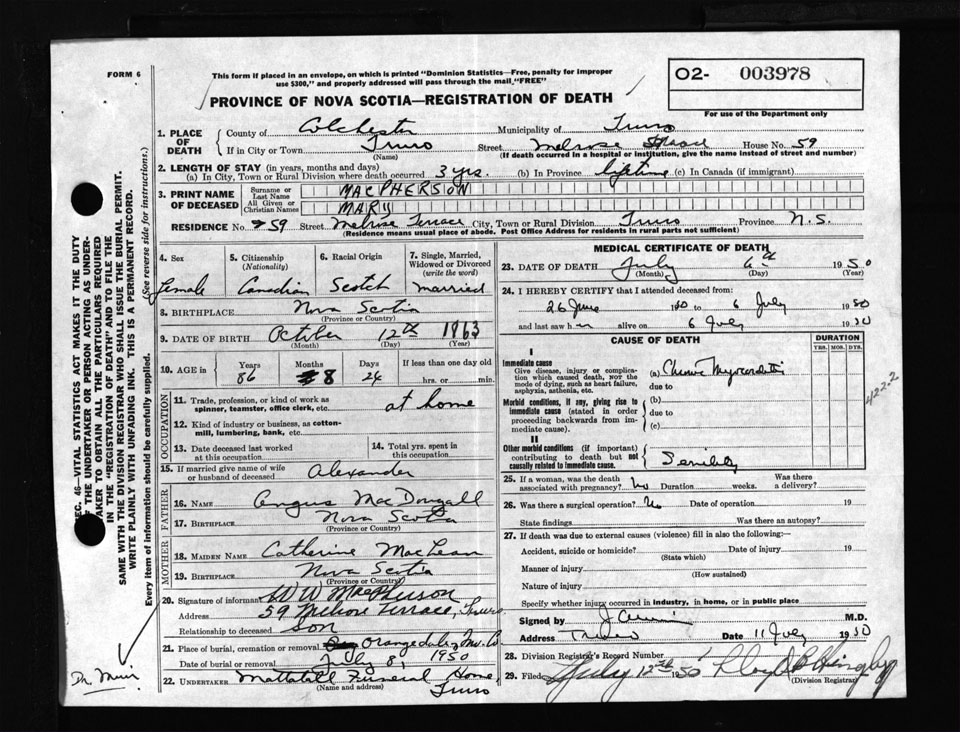 FORM 6
This form if placed in an envelope, on which is printed "Dominion Statistics—Free, penalty for improper
use $300," and properly addressed will pass through the mail "FREE"
O2- 003978
For use of the Department only
PROVINCE OF NOVA SCOTIA—REGISTRATION OF DEATH
1. PLACE OF DEATH
County of Colchester Municipality of Truro
If in City or Town Truro Street Melrose Terrace House No. 59
(Name) (If death occurred in a hospital or institution, give the name instead of street and number)
2. LENGTH OF STAY (in years, months and days)
(a) In City, Town or Rural Division where death occurred 3 yrs. (b) In Province lifetime (c) In Canada (if immigrant)
3. PRINT NAME OF DECEASED
Surname or Last Name MACPHERSON
All Given or Christian Names MARY
RESIDENCE No. 59 Street Melrose Terrace City, Town or Rural Division Truro Province N.S.
(Residence means usual place of abode. Post Office Address for residents in rural parts not sufficient)
4. Sex Female
5. Citizenship (Nationality) Canadian
6. Racial Origin Scotch
7. Single, Married, Widowed or Divorced (write the word) married
8. BIRTHPLACE Nova Scotia
(Province or Country)
9. DATE OF BIRTH October 12th 1863
(Month) (Day) (Year)
10. AGE IN Years 86 Months 8 Days 24 If less than one day old hrs. or min.
OCCUPATION
11. Trade, profession, or kind of work as spinner, teamster, office clerk, etc. at home
12. Kind of industry or business, as cotton-mill, lumbering, bank, etc.
13. Date deceased last worked at this occupation
14. Total yrs. spent in this occupation
15. If married give name of wife or husband of deceased Alexander
FATHER
16. NAME Angus MacDougall
17. BIRTHPLACE Nova Scotia
(Province or Country)
MOTHER
18. MAIDEN NAME Catherine MacLean
19. BIRTHPLACE Nova Scotia
(Province or Country)
20. Signature of informant W W MacPherson
Address 59 Melrose Terrace, Truro
Relationship to deceased Son
21. Place of burial, cremation or removal Orangedale, Inv. Co.
Date of burial or removal July 8, 1950
22. UNDERTAKER Mattatall Funeral Home,
(Name and address) Truro
MEDICAL CERTIFICATE OF DEATH
23. DATE OF DEATH July 6th 1950
(Month) (Day) (Year)
24. I HEREBY CERTIFY that I attended deceased from:
26 June 1950 to 6 July 1950
and last saw her alive on 6 July 1950
CAUSE OF DEATH DURATION
YRS. MOS. DYS.
I
Immediate cause
Give disease, injury or complication which caused death, NOT the mode of dying, such as heart failure, asphyxia, asthenia, etc.
(a) Chronic Myocarditis
due to
Morbid conditions, if any, giving rise to immediate cause (stated in order proceeding backwards from immediate cause).
(b)
due to
(c)
II
Other morbid conditions (if important) contributing to death but not causally related to immediate cause.
Senility
422.2
25. If a woman, was the death associated with pregnancy? No Duration weeks. Was there a delivery?
26. Was there a surgical operation? No Date of operation 19
State findings Was there an autopsy?
27. If death was due to external causes (violence) fill in also the following:
Accident, suicide or homicide? Date of injury 19
(State which)
Manner of injury
(How sustained)
Nature of injury
Specify whether injury occurred in industry, in home, or in public place
Signed by M.D.
Address Truro Date 11 July 1950
28. Division Registrar's Record Number
29. Filed July 12th 1950
(Division Registrar)
SEC. 46—VITAL STATISTICS ACT MAKES IT THE DUTY
OF THE UNDERTAKER OR PERSON ACTING AS UNDERTAKER
TO OBTAIN ALL THE PARTICULARS REQUIRED
IN THE "REGISTRATION OF DEATH" AND TO FILE THE
SAME WITH THE DIVISION REGISTRAR WHO SHALL ISSUE THE BURIAL PERMIT.
WRITE PLAINLY WITH UNFADING INK. THIS IS A PERMANENT RECORD.
Every item of information should be carefully supplied. (See reverse side for instructions.)
Dr. Muir